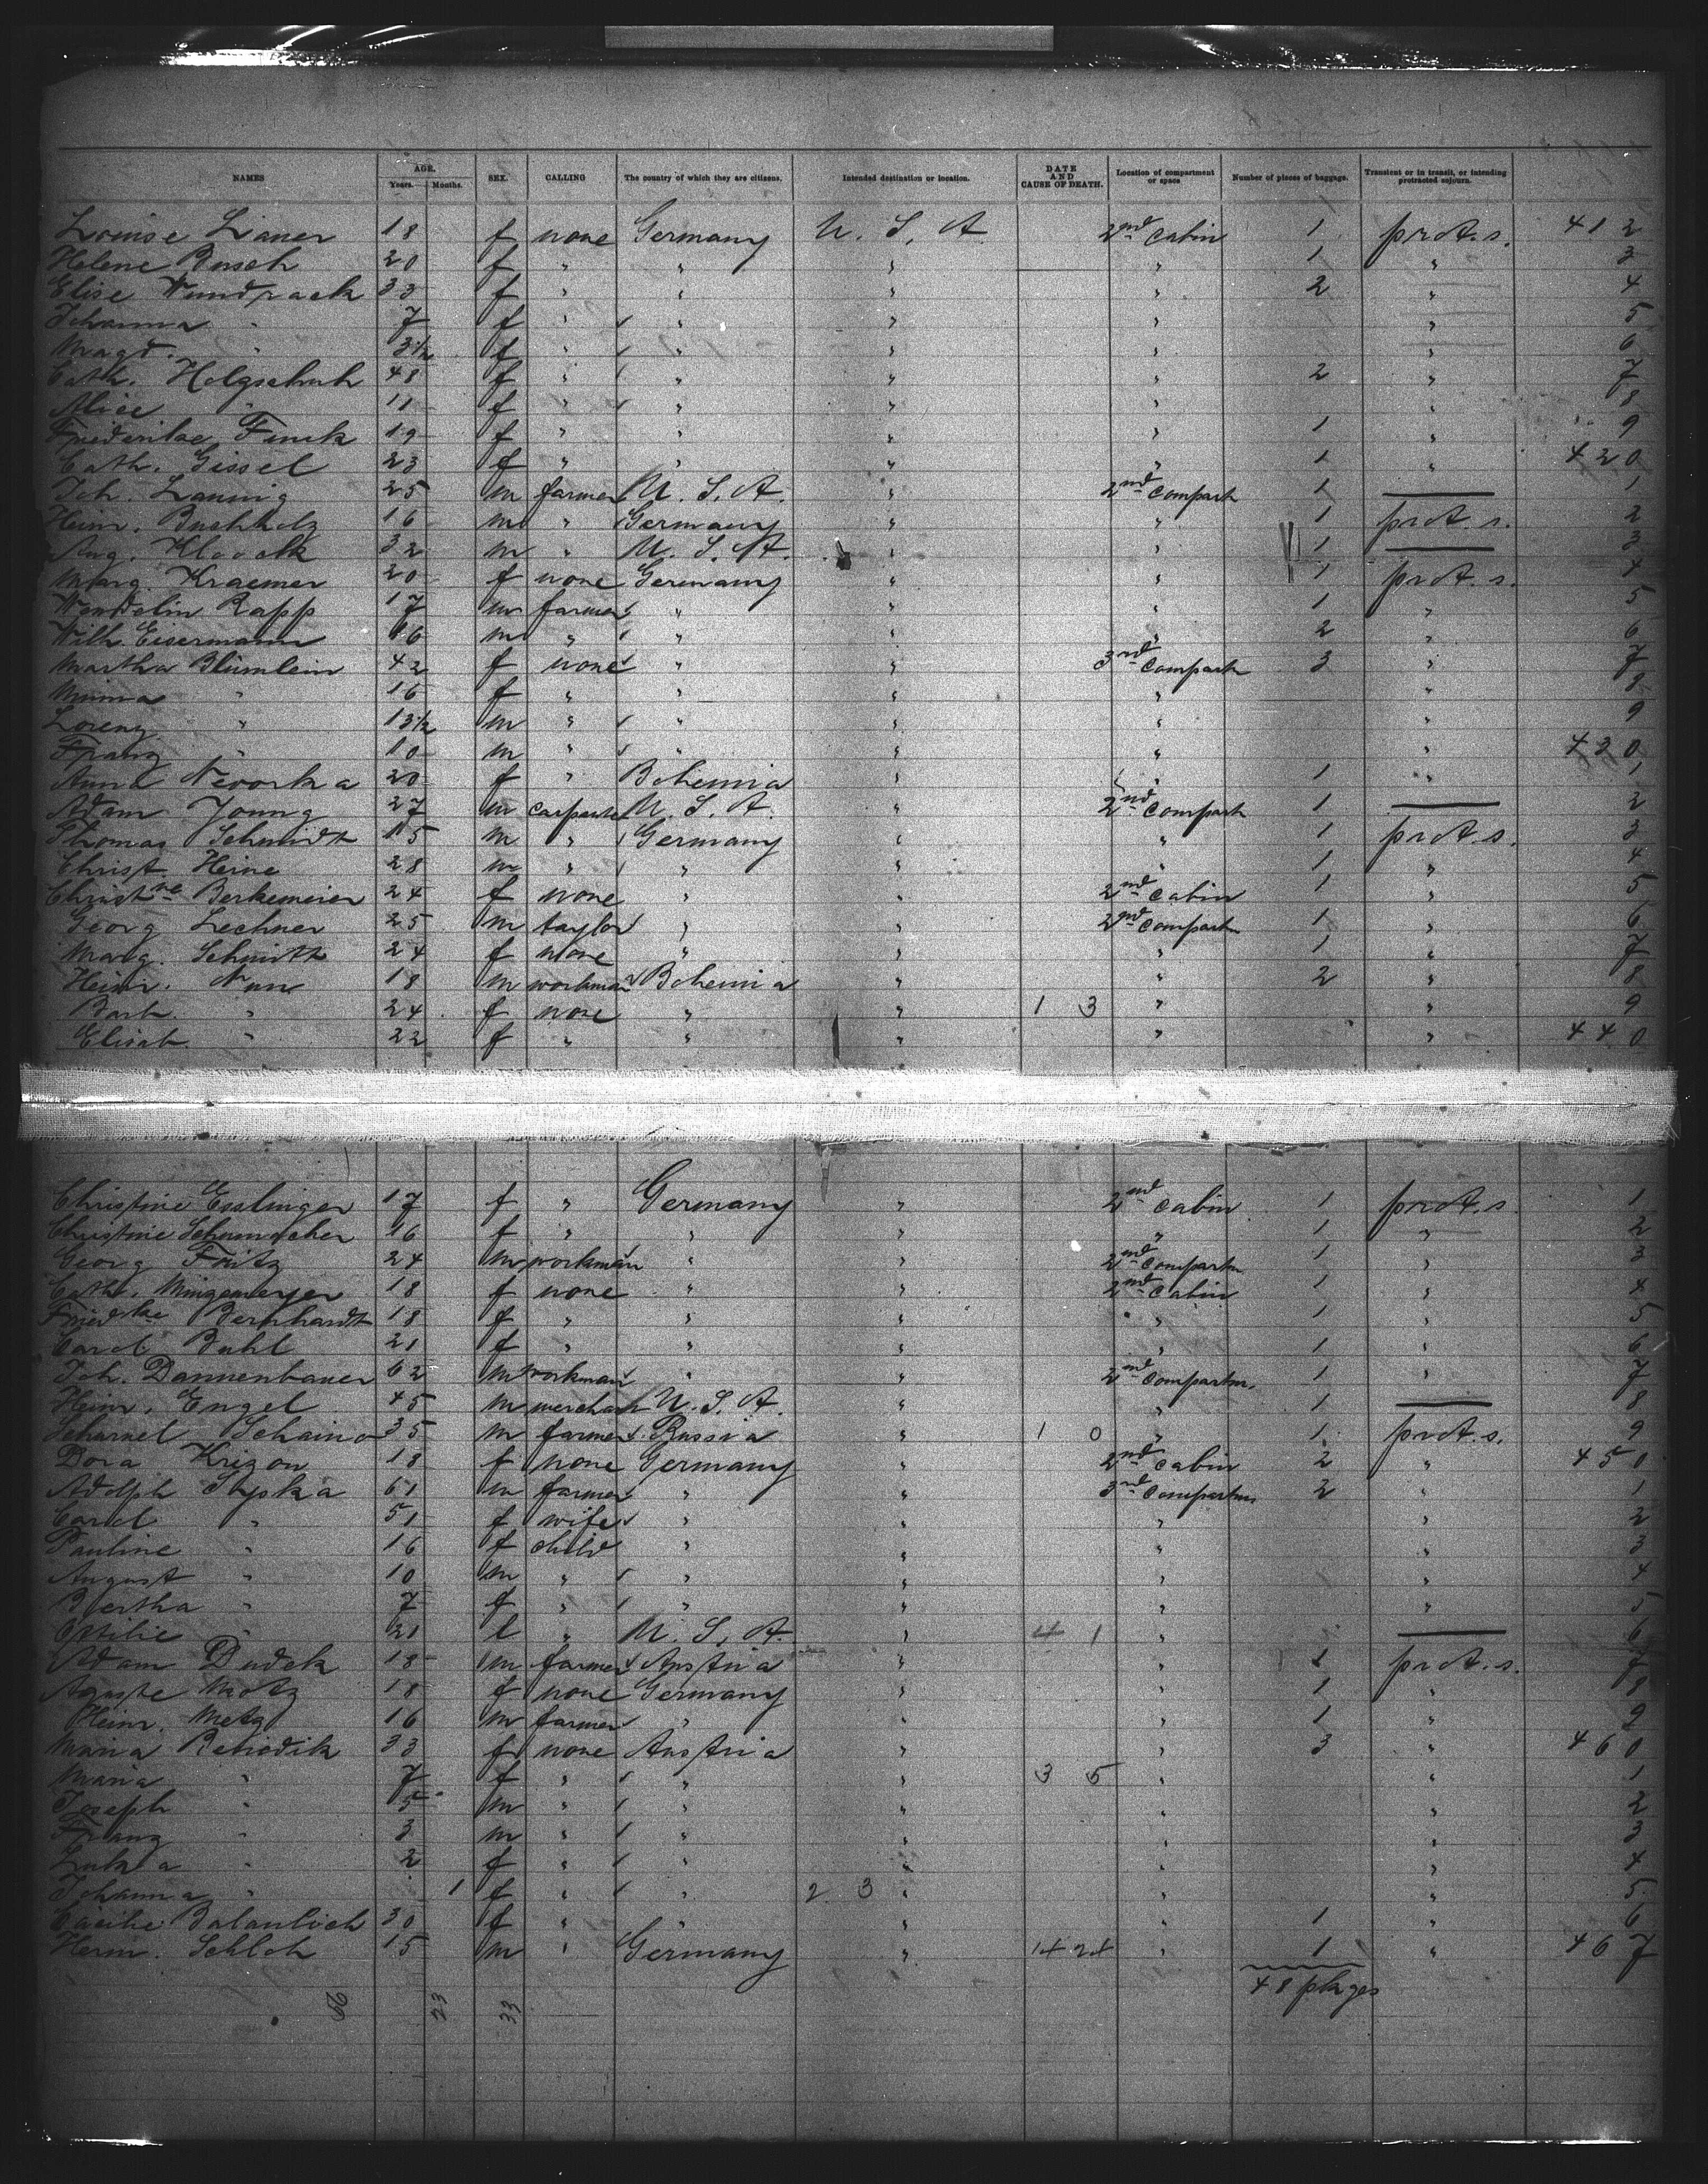 NAMES AGE. Years. Months. SEX. CALLING The country of which they are citizens. Intended destination or location. DATE AND CAUSE OF DEATH. Location of compartment or space Number of pieces of baggage. Transient or in transit, or intending protracted sojourn.
Louise Lauer 18 f none Germany U. S. A. 2nd Cabin 1 prot. s. 412
Helene Busch 20 f " " " " 1 " 3
Elise Wundrack 33 f " " " " 2 " 4
Johanna " 7 f " " " " " 5
Magd. " 3 1/2 f " " " " " 6
Cath. Holzschuh 48 f " " " " 2 " 7
Alice " 11 f " " " " " 8
Friederike Finck 19 f " " " " 1 " 9
Cath. Gissel 23 f " " " " 1 " 420
Joh. Lannig 25 m farmer U. S. A. " 2nd Compart 1 — 1
Heinr. Buchholz 16 m " Germany " " 1 prot. s. 2
Aug. Kloock 32 m " U. S. A. " " 1 — 3
Marg. Kraemer 20 f none Germany " " 1 prot. s. 4
Wendelin Rapp 17 m farmer " " " 1 " 5
Wilh. Eisermann 16 m " " " " 2 " 6
Martha Blümlein 42 f none " " 3rd Compart 3 " 7
Minna " 16 f " " " " " 8
Lorenz " 13 1/2 m " " " " " 9
Franz " 10 m " " " " " 430
Anna Nevorka 20 f " Bohemia " " 1 " 1
Adam Young 27 m carpenter U. S. A. " 2nd Compart 1 — 2
Thomas Schmidt 15 m " Germany " " 1 prot. s. 3
Christ. Heine 28 m " " " " 1 " 4
Christne Berkemeier 24 f none " " 2nd Cabin 1 " 5
Georg Lechner 25 m taylor " " 2nd Compart 1 " 6
Marg. Schmitt 24 f none " " " 1 " 7
Heinr. Nun 18 m workman Bohemia " " 2 " 8
Barb. " 24 f none " " 1 3 " " 9
Elisab. " 22 f " " " " " 440
Christine Esslinger 17 f " Germany " 2nd Cabin 1 prot. s. 1
Christine Schumacher 16 f " " " " 1 " 2
Georg Fritz 24 m workman " " 2nd Compartm 1 " 3
Cath. Minzemeyer 18 f none " " 2nd Cabin 1 " 4
Friedke Bernhardt 18 f " " " " 1 " 5
Carol. Buhl 21 f " " " " 1 " 6
Joh. Dannenbauer 62 m workman " " 2nd Compartm. 1 " 7
Heinr. Engel 45 m merchant U. S. A. " " 1 — 8
35 m farmer Russia " 1 0 " 1 prot. s. 9
Dora Krizon 18 f none Germany " 2nd Cabin 2 " 450
Adolph Lyska 61 m farmer " " 3rd Compartm 2 " 1
Carol " 51 f wife " " " " 2
Pauline " 16 f child " " " " 3
August " 10 m " " " " " 4
Bertha " 7 f " " " " " 5
Ottilie " 21 f " U. S. A. " 4 1 " — 6
Adam Dudek 18 m farmer Austria " " 1 prot. s. 7
Aguste Motz 18 f none Germany " " 1 " 8
Heinr. Metz 16 m farmer " " " 1 " 9
Maria Benedik 33 f none Austria " " 3 " 460
Maria " 7 f " " " 3 5 " " 1
Joseph " 5 m " " " " " 2
Franz " 3 m " " " " " 3
" 2 f " " " " " 4
Johanna " 1 f " " 2 3 " " " 5
Cäcilie 30 f " " " " 1 " 6
Herm. Schloh 15 m " Germany " 14 24 " 1 " 467
48 pkges
23 33